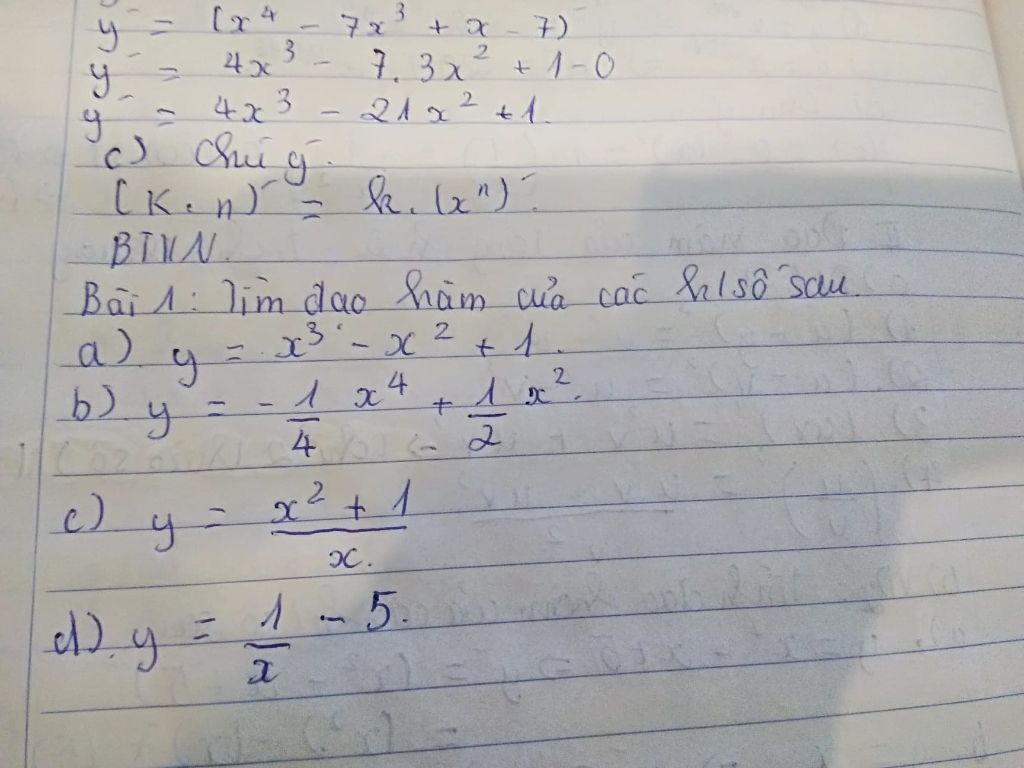 y' = (x⁴ - 7x³ + x - 7)'
y' = 4x³ - 7.3x² + 1 - 0
y' = 4x³ - 21x² + 1.
c) Chú ý.
(K.n)' = k.(xⁿ)'.
BTVN.
Bài 1: Tìm đạo hàm của các h/số sau.
a) y = x³ - x² + 1.
b) y = -1/4 x⁴ + 1/2 x².
c) y = (x² + 1)/x.
d) y = 1/x - 5.